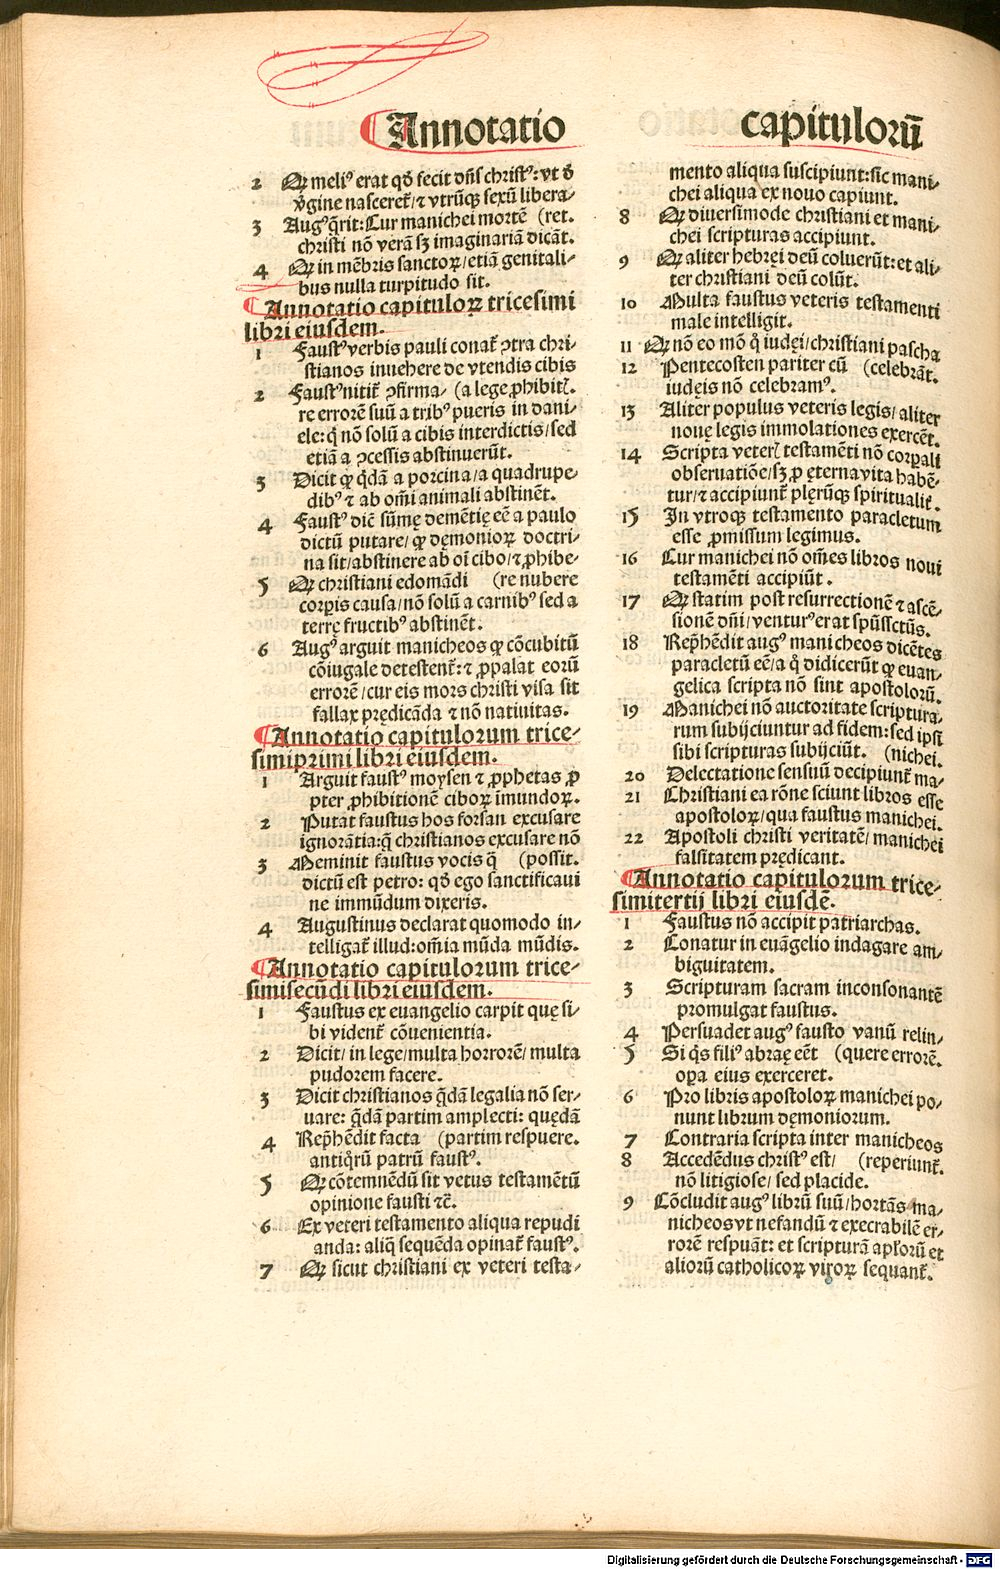 Annotatio
capitulorū
2 Qꝛ meliꝰ erat qď fecit dn̄s christꝰ: vt ď
v̔gine nasceret᷑/ ⁊ vtrūqꝫ sexū libera-
3 Augꝰ q̄rit: Cur manichei mortē (ret.
christi nō verā sꝫ imaginariā dicāt.
4 Qꝛ in mēbris sanctoꝝ/ etiā genitali-
bus nulla turpitudo sit.
Annotatio capituloꝝ tricesimi
libri eiusdem.
1 Faustꝰ verbis pauli conat᷑ ꝯtra chri-
stianos inuehere de vtendis cibis
2 Faustꝰ nitit᷑ ꝯfirma- (a lege ꝓhibitꝭ.
re errorē suū a tribꝰ pueris in dani-
ele: q̇ nō solū a cibis interdictis/ sed
etiā a ꝯcessis abstinuerūt.
3 Dicit ꝙ q̇dā a porcina/ a quadrupe-
dibꝰ ⁊ ab om̄i animali abstinēt.
4 Faustꝰ dic̄ sūmę demētię eē a paulo
dictū putare/ ꝙ dęmonioꝝ doctri-
na sit/ abstinere ab oī cibo/ ⁊ ꝓhibe-
5 Qꝛ christiani edomādi (re nubere
corꝑis causa/ nō solū a carnibꝰ sed a
terrę fructibꝰ abstinēt.
6 Augꝰ arguit manicheos ꝙ cōcubitū
cōiugale detestent᷑: ⁊ ꝓpalat eorū
errorē/ cur eis mors christi visa sit
fallax prędicāda ⁊ nō natiuitas.
Annotatio capitulorum trice-
simiprimi libri eiusdem.
1 Arguit faustꝰ moysen ⁊ ꝓphetas ꝓ
pter ꝓhibitionē ciboꝝ īmundoꝝ.
2 Putat faustus hos forsan excusare
ignorātia: q̄ christianos excusare nō
3 Meminit faustus vocis q̄ (possit.
dictū est petro: qď ego sanctificaui
ne immūdum dixeris.
4 Augustinus declarat quomodo in-
telligat᷑ illud: om̄ia mūda mūdis.
Annotatio capitulorum trice-
simisecūdi libri eiusdem.
1 Faustus ex euangelio carpit quę si-
bi vident᷑ cōuenientia.
2 Dicit/ in lege/ multa horrorē/ multa
pudorem facere.
3 Dicit christianos q̄dā legalia nō ser-
uare: q̄dā partim amplecti: quędā
4 Rep̄hēdit facta (partim respuere.
antiq̇rū patrū faustꝰ.
5 Qꝛ cōtemnēdū sit vetus testamētū
opinione fausti ⁊c̄.
6 Ex veteri testamento aliqua repudi
anda: aliq̄ sequēda opinat᷑ faustꝰ.
7 Qꝛ sicut christiani ex veteri testa-
mento aliqua suscipiunt: sic mani-
chei aliqua ex nouo capiunt.
8 Qꝛ diuersimode christiani et mani-
chei scripturas accipiunt.
9 Qꝛ aliter hebręi deū coluerūt: et ali-
ter christiani deū colūt.
10 Multa faustus veteris testamenti
male intelligit.
11 Qꝛ nō eo mō q̇ iudęi/ christiani pascha
12 Pentecosten pariter cū (celebrāt.
iudęis nō celebramꝰ.
13 Aliter populus veteris legis/ aliter
nouę legis immolationes exercēt.
14 Scripta veterꝭ testamēti nō corꝑali
obseruatiōe/ sꝫ ꝓ ęterna vita habē-
tur/ ⁊ accipiunt᷑ plęrūqꝫ spiritualit᷑.
15 In vtroqꝫ testamento paracletum
esse ꝓmissum legimus.
16 Cur manichei nō om̄es libros noui
testamēti accipiūt.
17 Qꝛ statim post resurrectionē ⁊ ascē-
sionē dn̄i/ venturꝰ erat spūssctūs.
18 Rep̄hēdit augꝰ manicheos dicētes
paracletū eē/ a q̇ didicerūt ꝙ euan-
gelica scripta nō sint apostolorū.
19 Manichei nō auctoritate scriptura-
rum subijciuntur ad fidem: sed ipsi
sibi scripturas subijciūt. (nichei.
20 Delectatione sensuū decipiunt᷑ ma-
21 Christiani ea rōne sciunt libros esse
apostoloꝝ/ qua faustus manichei.
22 Apostoli christi veritatē/ manichei
falsitatem prędicant.
Annotatio capitulorum trice-
simitertij libri eiusdē.
1 Faustus nō accipit patriarchas.
2 Conatur in euāgelio indagare am-
biguitatem.
3 Scripturam sacram inconsonantē
promulgat faustus.
4 Persuadet augꝰ fausto vanū relin-
5 Si q̇s filiꝰ abraę eēt (quere errorē.
oꝑa eius exerceret.
6 Pro libris apostoloꝝ manichei po-
nunt librum dęmoniorum.
7 Contraria scripta inter manicheos
8 Accedēdus christꝰ est/ (reperiunt᷑.
nō litigiose/ sed placide.
9 Cōcludit augꝰ librū suū/ hortās ma-
nicheos vt nefandū ⁊ execrabilē er-
rorē respuāt: et scripturā apl̄orū et
aliorū catholicoꝝ viroꝝ sequant᷑.
Digitalisierung gefördert durch die Deutsche Forschungsgemeinschaft - DFG